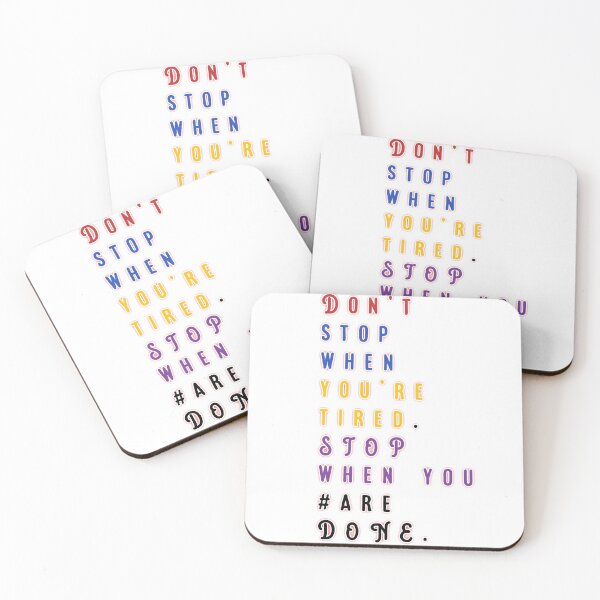 DON'T
STOP
WHEN
YOU'RE
DON'T
STOP
WHEN
YOU'RE
TIRED.
STOP
WHEN YOU
DON'T
STOP
WHEN
YOU'RE
TIRED.
STOP
WHEN
#ARE
DON
DON'T
STOP
WHEN
YOU'RE
TIRED.
STOP
WHEN YOU
#ARE
DONE.